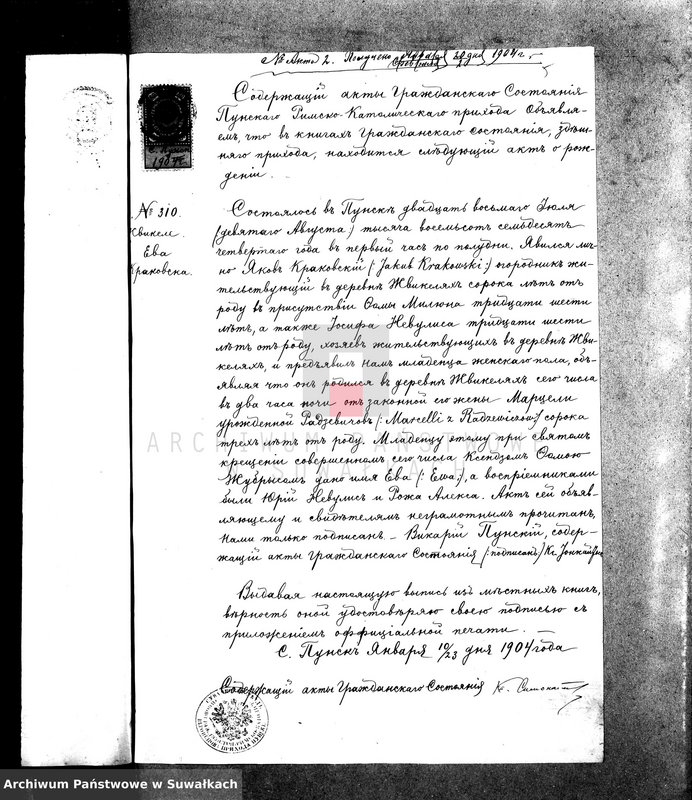 № Акта 2. Получено 1904 г.
Содержащій акты Гражданскаго Состоянія
Пунскаго Римско-Католическаго прихода Объявля-
емъ, что въ книгахъ Гражданскаго состоянія, здѣш-
няго прихода, находится слѣдующій актъ о рож-
деніи.
1904 г.
№ 310.
Жвикели.
Ева
Краковска.
Состоялось въ Пунскѣ двадцать восьмаго Іюля
(девятаго Августа) тысяча восемьсотъ семьдесятъ
четвертаго года въ первый часъ по полудни. Явился лич-
но Яковъ Краковскій (: Jakub Krakowski :) огородникъ жи-
тельствующій въ деревнѣ Жвикеляхъ сорока лѣтъ отъ
роду въ присутствіи Ѳомы Милюна тридцати шести
лѣтъ, а также Іосифа Невулиса тридцати шести
лѣтъ отъ роду, хозяевъ жительствующихъ въ деревнѣ Жви-
келяхъ, и предъявилъ намъ младенца женскаго пола, объ-
являя что онъ родился въ деревнѣ Жвикеляхъ сего числа
въ два часа ночи отъ законной его жены Марцели
урожденной Радзевичовъ (: Marcelli z Radzewiczow :) сорока
трехъ лѣтъ отъ роду. Младенцу этому при святомъ
крещеніи совершенномъ сего числа Ксендзомъ Ѳомою
Жубрысомъ дано имя Ева (: Ewa :), а воспріемниками
были Юрій Невулисъ и Рожа Алекса. Актъ сей объяв-
ляющему и свидѣтелямъ неграмотнымъ прочитанъ,
нами только подписанъ. – Викарій Пунскій, содер-
жащій акты Гражданскаго Состоянія (: подписалъ :) Кс. Іонкайтисъ
Выдавая настоящую выпись изъ мѣстныхъ книгъ,
вѣрность оной удостовѣряю своею подписью съ
приложеніемъ оффиціальной печати.
С. Пунскъ Января 10/23 дня 1904 года
Содержащій акты Гражданскаго Состоянія Кс.
ARCHIWUM PAŃSTWOWE
W SUWAŁKACH
Archiwum Państwowe w Suwałkach